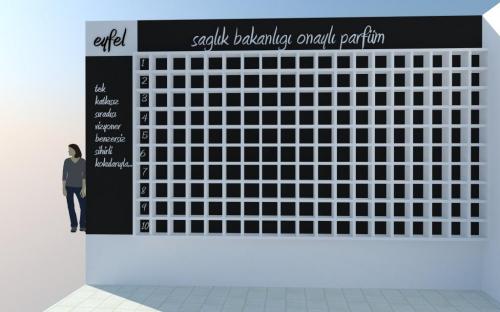 eyfel
sağlık bakanlığı onaylı parfüm
tek
katkısız
sıradışı
vizyoner
benzersiz
sihirli
kokularıyla...
1
2
3
4
5
6
7
8
9
10